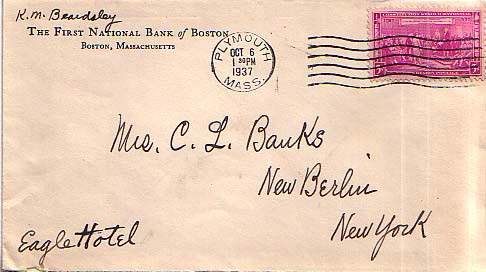 K.M. Beardsley
THE FIRST NATIONAL BANK of BOSTON
BOSTON, MASSACHUSETTS
PLYMOUTH
OCT 6
1 30 PM
1937
MASS.
Mrs. C. L. Banks
New Berlin
New York
Eagle Hotel